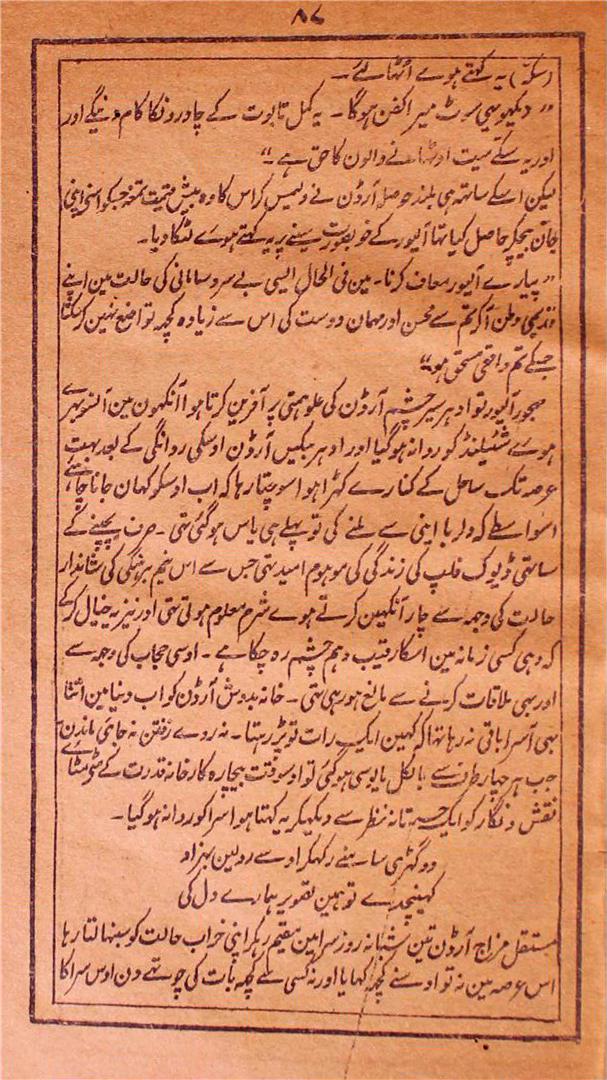 ۸۷
(سکّہ) یہ کہتے ہوے اٹھا لئے۔
" دیکھو یہی سوٹ میرا کفن ہوگا۔ یہ کمل تابوت کے چادرونکا کام دینگے اور
اور یہ سکے میت اوٹھانے والون کا حق ہے"
لیکن اسکے ساتھ ہی بلند حوصلہ آرڈن نے ولمیس کر اس کا وہ بیش قیمت تمغہ جسکو اسنے اپنی
جان بیچکر حاصل کیا تھا آلیور کے خوبصورت سینے پر یہ کہتے ہوے لٹکا دیا۔
" پیارے آلیور معاف کرنا۔ مین فی الحال ایسی بے سروسامانی کی حالت مین اپنے
قدیمی وطن آکر تم سے محسن اور مہمان دوست کی اس سے زیادہ کچھ تواضع نہین کرسکتا
جسکے تم واقعی مستحق ہو"
مجبور آلیور تو ادہر سیر چشم آرڈن کی علو ہمتی پر آفرین کرتا ہوا آنکھون مین آنسو بہرے
ہوے شٹیلنڈ کو روانہ ہوگیا اور اودہر بیکس آرڈن اوسکی روانگی کے بعد بہت
عرصہ تک ساحل کے کنارے کہڑا ہوا سوچتا رہا کہ اب اوسکو کہان جانا چاہئے
اسواسطے کہ دلربا اینی سے ملنے کی تو پہلے ہی یاس ہوگئی تہی۔ صرف بچپنے کے
ساتھی ڈیوک فلپ کی زندگی کی موہوم امید تہی جس سے اس نیم برہنگی کی شاندار
حالت کی وجہ سے چار آنکہین کرتے ہوے شرم معلوم ہوتی تہی اور نیز یہ خیال کرکے
کہ وہی کسی زمانہ مین اسکا رقیب و ہم چشم رہ چکا ہے۔ اوسی حجاب کی وجہ سے
اور بہی ملاقات کرنے سے مانع ہو رہی تہی۔ خانہ بدوش آرڈن کو اب دنیا مین اتنا
بہی آسرا باقی نہ رہا تہا کہ کہین ایک رات تو پڑ رہتا۔ نہ روے رفتن نہ جائے ماندن
جب ہر چار طرف سے بالکل مایوسی ہوگئی تو اوسوقت بیچارہ کارخانہ قدرت کے مٹے مٹائے
نقش و نگار کو ایک حسرتانہ نظر سے دیکہکر یہ کہتا ہوا سرا کو روانہ ہوگیا۔
دو گہڑی سامنے رکہکر اوسے رولین بہزاد
کہینچدے تو ہین تصویر ہمارے دل کی
مستقل مزاج آرڈن تین شبانہ روز سرا مین مقیم رہکر اپنی خراب حالت کو سنبہالتا رہا
اس عرصہ مین نہ تو اوسنے کچھ کہایا اور نہ کسی سے کچھ بات کی چوتھے دن اوس سرا کا